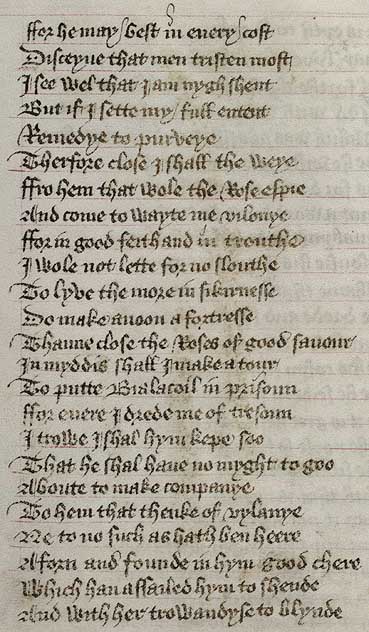 ffor he may / best in euery / cost
Disceyue that men tristen most
I see wel that I am nygh shent
But if I sette my / full entent
Remedye to purveye
Therfore close I shall the weye
ffro hem that wole the Rose espie
And come to wayte me vilonye
ffor in good feith and in trouthe
I wole not lette for no slouthe
To lyve the more in sikirnesse
Do make anoon a fortresse
Thanne close the Roses of good sauour
In myddis shall I make a tour
To putte Bialacoil in prisoun
ffor euere I drede me of tresoun
I trowe I shal hym kepe soo
That he shal haue no myght to goo
Aboute to make companye
To hem that thenke of vylanye
Ne to no such as hath ben heere
Aforn and founde in hym good chere
Which han assailed hym to shende
And with her trowandyse to blynde